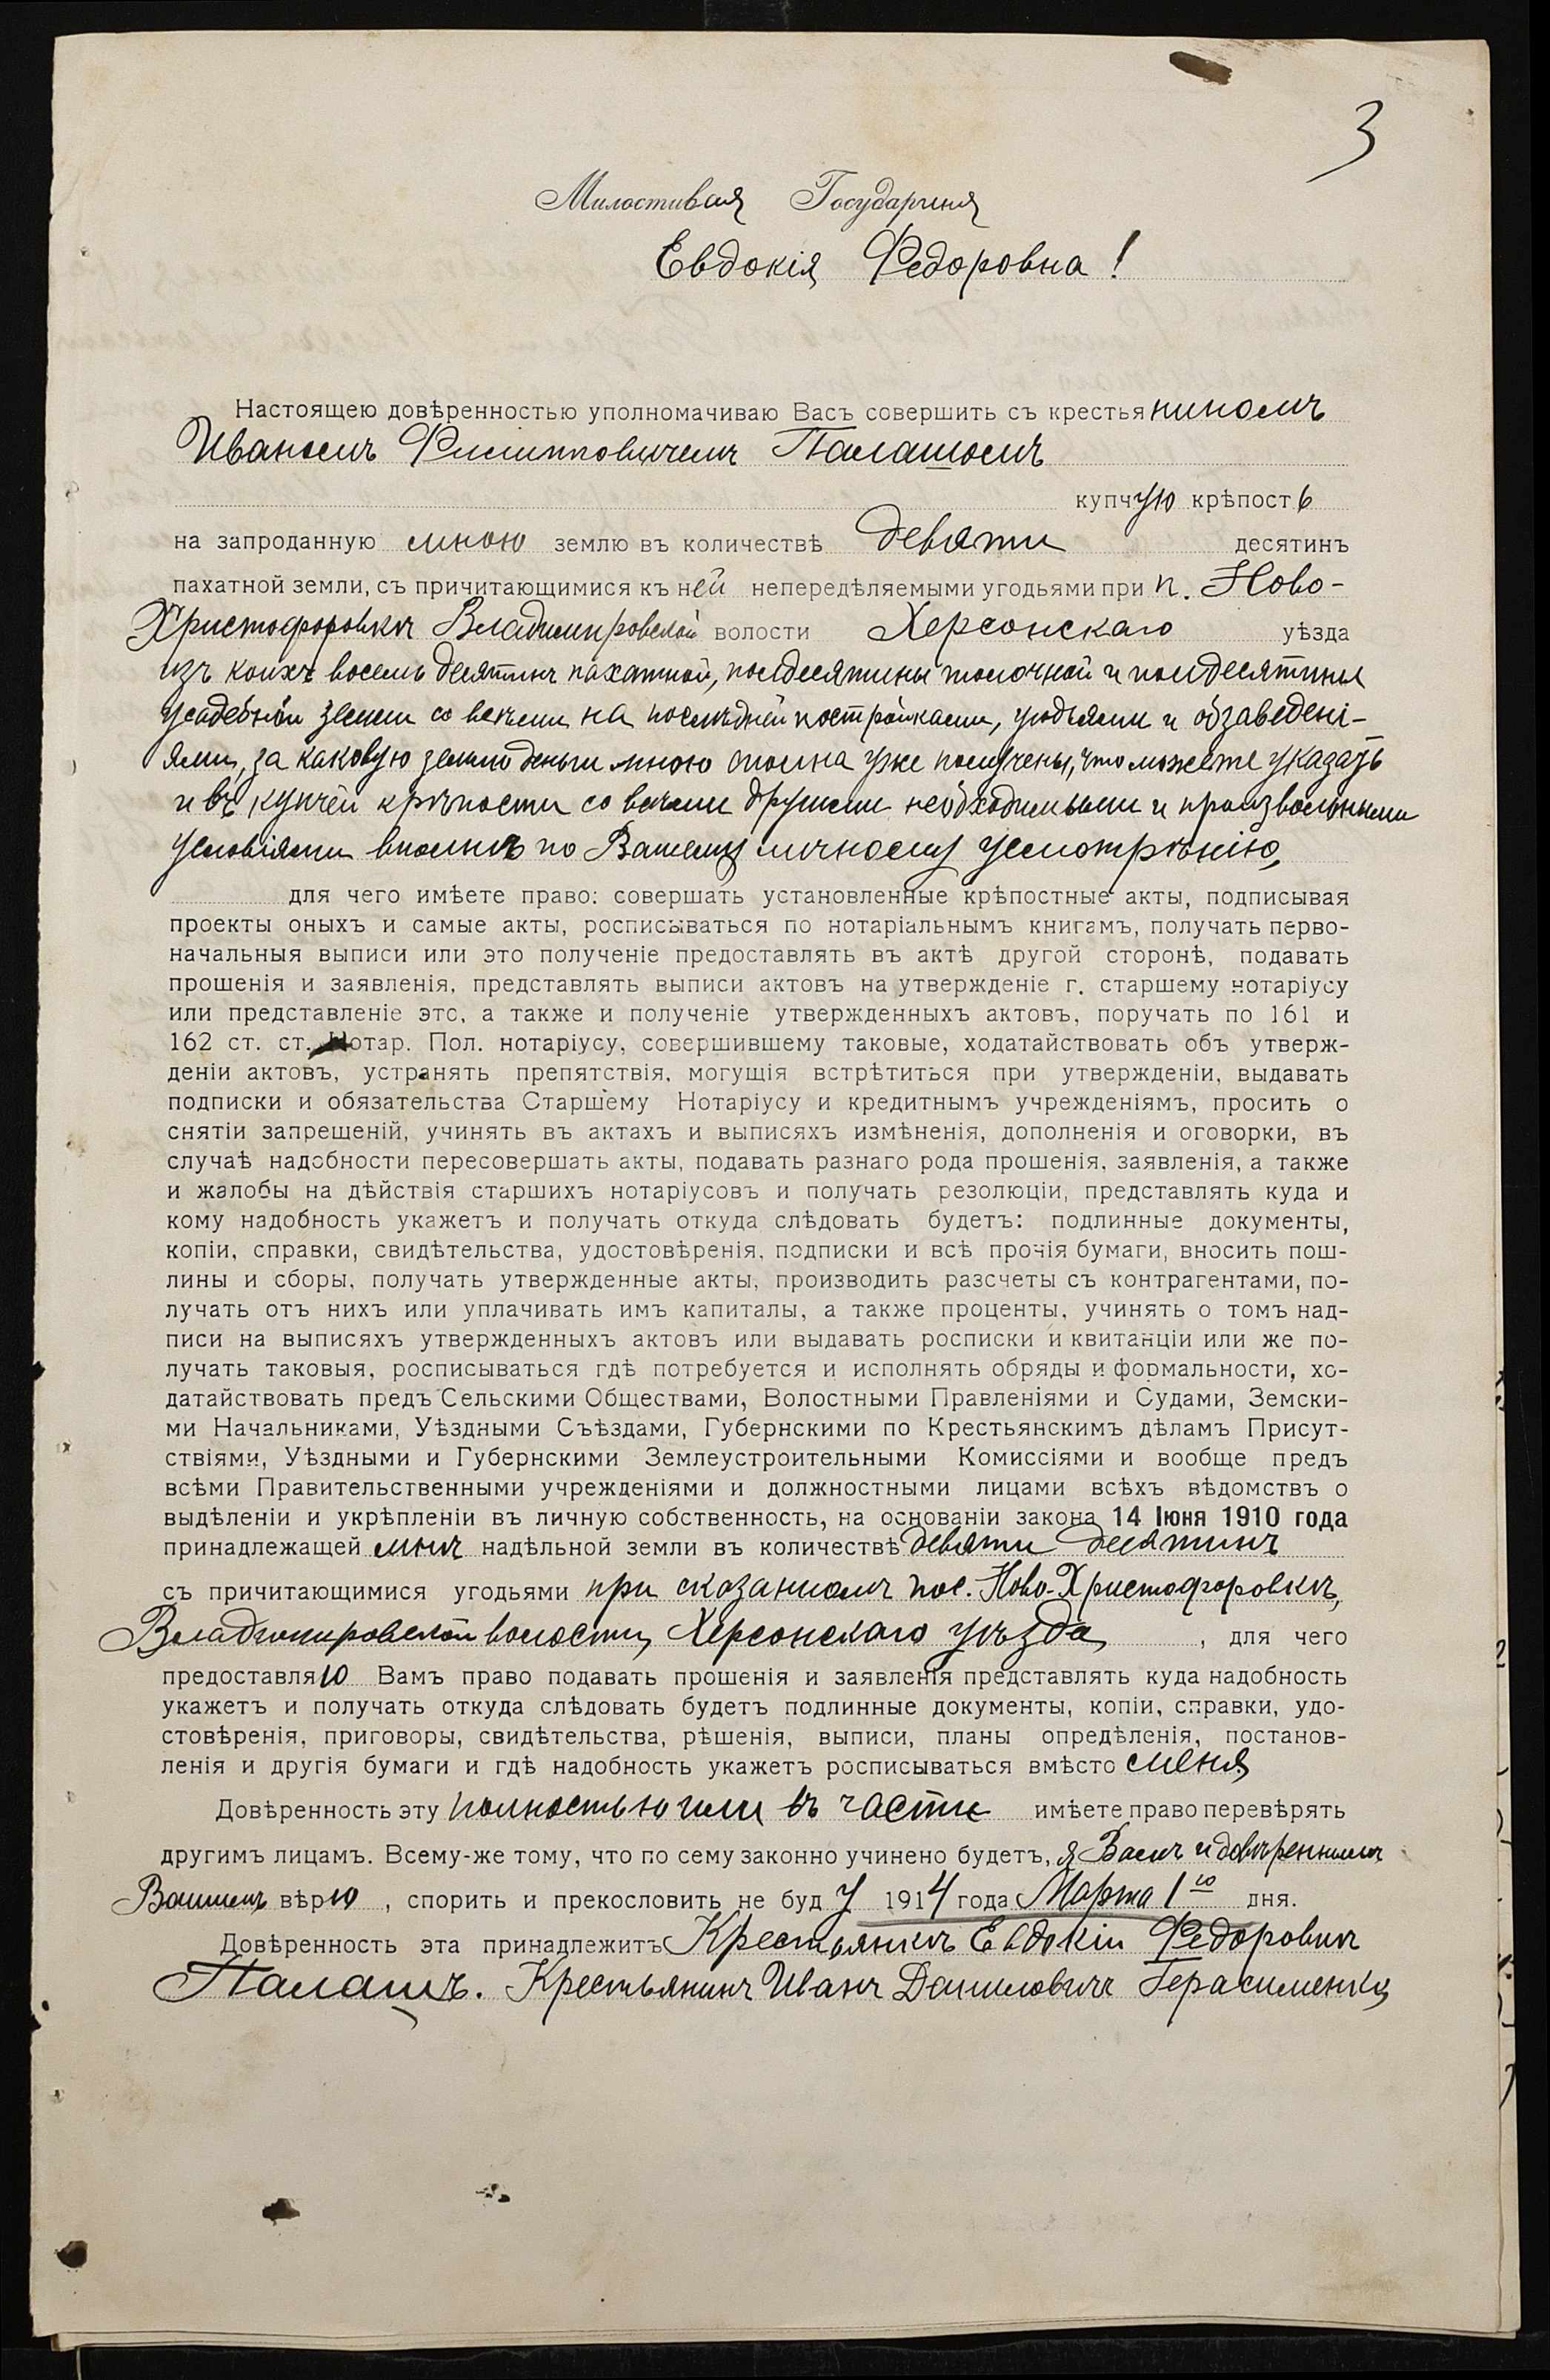 3
Милостивая Государыня
Евдокія Федоровна!
Настоящею довѣренностью уполномачиваю Васъ совершить съ крестьяниномъ
Иваномъ Филипповичемъ Палашомъ
купчую крѣпость
на запроданную мною землю въ количествѣ девяти десятинъ
пахатной земли, съ причитающимися къ ней непередѣляемыми угодьями при п. Ново-
Христофоровкѣ Владимировской волости Херсонскаго уѣзда
изъ коихъ восемь десятинъ пахатной, полдесятины толочной и полдесятины
усадебной земли со всѣми на послѣдней постройками, угодьями и обзаведені-
ями, за каковую землю деньги мною сполна уже получены, что можете указать
и въ купчей крѣпости со всѣми другими необходимыми и произвольными
условіями вполнѣ по Вашему личному усмотрѣнію,
для чего имѣете право: совершать установленные крѣпостные акты, подписывая
проекты оныхъ и самые акты, росписываться по нотаріальнымъ книгамъ, получать перво-
начальныя выписи или это полученіе предоставлять въ актѣ другой сторонѣ, подавать
прошенія и заявленія, представлять выписи актовъ на утвержденіе г. старшему нотаріусу
или представленіе это, а также и полученіе утвержденныхъ актовъ, поручать по 161 и
162 ст. ст. Нотар. Пол. нотаріусу, совершившему таковые, ходатайствовать объ утверж-
деніи актовъ, устранять препятствія, могущія встрѣтиться при утвержденіи, выдавать
подписки и обязательства Старшему Нотаріусу и кредитнымъ учрежденіямъ, просить о
снятіи запрещеній, учинять въ актахъ и выписяхъ измѣненія, дополненія и оговорки, въ
случаѣ надобности пересовершать акты, подавать разнаго рода прошенія, заявленія, а также
и жалобы на дѣйствія старшихъ нотаріусовъ и получать резолюціи, представлять куда и
кому надобность укажетъ и получать откуда слѣдовать будетъ: подлинные документы,
копіи, справки, свидѣтельства, удостовѣренія, подписки и всѣ прочія бумаги, вносить пош-
лины и сборы, получать утвержденные акты, производить разсчеты съ контрагентами, по-
лучать отъ нихъ или уплачивать имъ капиталы, а также проценты, учинять о томъ над-
писи на выписяхъ утвержденныхъ актовъ или выдавать росписки и квитанціи или же по-
лучать таковыя, росписываться гдѣ потребуется и исполнять обряды и формальности, хо-
датайствовать предъ Сельскими Обществами, Волостными Правленіями и Судами, Земски-
ми Начальниками, Уѣздными Съѣздами, Губернскими по Крестьянскимъ дѣламъ Присут-
ствіями, Уѣздными и Губернскими Землеустроительными Комиссіями и вообще предъ
всѣми Правительственными учрежденіями и должностными лицами всѣхъ вѣдомствъ о
выдѣленіи и укрѣпленіи въ личную собственность, на основаніи закона 14 Іюня 1910 года
принадлежащей мнѣ надѣльной земли въ количествѣ девяти десятинъ
съ причитающимися угодьями при сказанномъ пос. Ново-Христофоровкѣ,
Владимировской волости, Херсонскаго уѣзда, для чего
предоставляю Вамъ право подавать прошенія и заявленія представлять куда надобность
укажетъ и получать откуда слѣдовать будетъ подлинные документы, копіи, справки, удо-
стовѣренія, приговоры, свидѣтельства, рѣшенія, выписи, планы опредѣленія, постанов-
ленія и другія бумаги и гдѣ надобность укажетъ росписываться вмѣсто меня
Довѣренность эту полностью или въ части имѣете право перевѣрять
другимъ лицамъ. Всему-же тому, что по сему законно учинено будетъ, я Вамъ и довѣреннымъ
Вашимъ вѣрю, спорить и прекословить не буду 1914 года Марта 1го дня.
Довѣренность эта принадлежитъ Крестьянкѣ Евдокіи Федоровнѣ
Палашъ. Крестьянинъ Иванъ Даниловичъ Герасименко